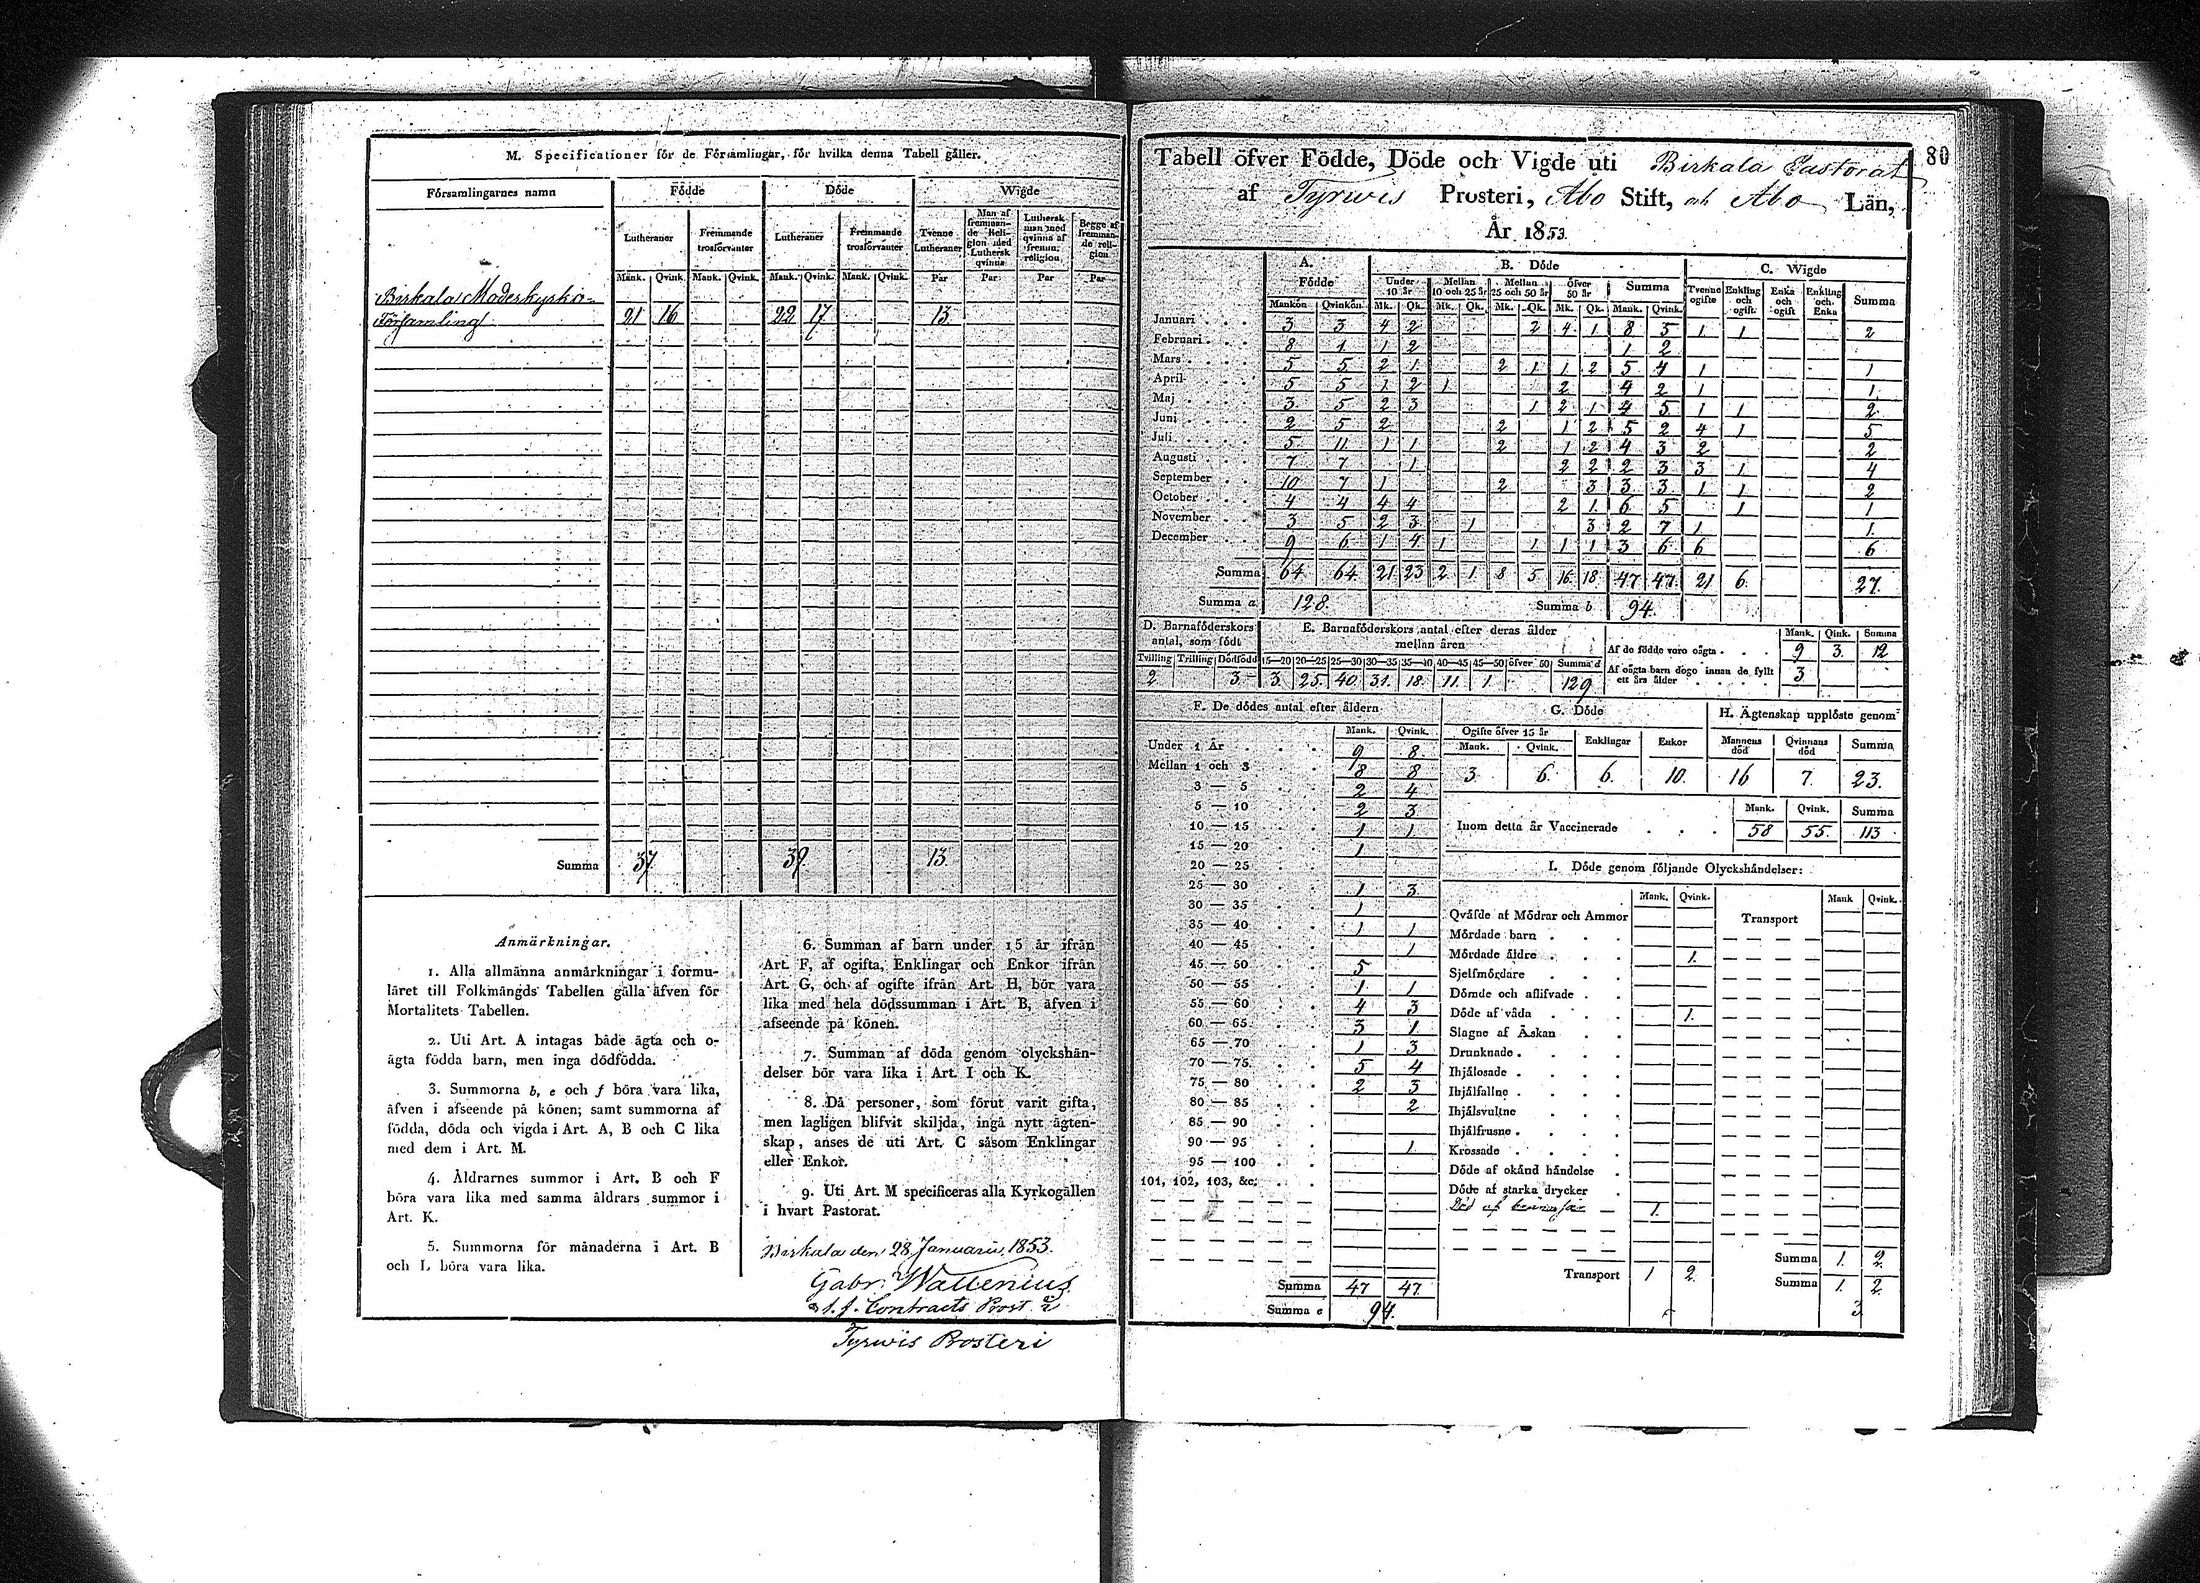 M. Specificationer för de Församlingar, för hvilka denna Tabell gäller.
Församlingarnes namn Födde Döde Wigde
Lutheraner Fremmande trosförvanter Lutheraner Fremmande trosförvanter Tvenne Lutheraner Man af fremmande Religion med Luthersk qvinna Luthersk man med qvinna af fremm. religion Begge af fremmande religion
Mank. Qvink. Mank. Qvink. Mank. Qvink. Mank. Qvink. Par Par Par Par
Birkala Moderkyrko-
Församling 21 16 22 17 13
Summa 37 39 13
Anmärkningar.
1. Alla allmänna anmärkningar i formu-
läret till Folkmängds Tabellen gälla äfven för
Mortalitets Tabellen.
2. Uti Art. A intagas både ägta och o-
ägta födda barn, men inga dödfödda.
3. Summorna b, e och f böra vara lika,
äfven i afseende på könen; samt summorna af
födda, döda och vigda i Art. A, B och C lika
med dem i Art. M.
4. Åldrarnes summor i Art. B och F
böra vara lika med samma åldrars summor i
Art. K.
5. Summorna för månaderna i Art. B
och L böra vara lika.
6. Summan af barn under 15 år ifrån
Art. F, af ogifta, Enklingar och Enkor ifrån
Art. G, och af ogifte ifrån Art. H, bör vara
lika med hela dödssumman i Art. B, äfven i
afseende på könen.
7. Summan af döda genom olyckshän-
delser bör vara lika i Art. I och K.
8. Då personer, som förut varit gifta,
men lagligen blifvit skiljda, ingå nytt ägten-
skap, anses de uti Art. C såsom Enklingar
eller Enkor.
9. Uti Art. M specificeras alla Kyrkogällen
i hvart Pastorat.
Birkala den 28 Januarii 1853.
Gabr. Wallenius
t. f. Contracts Prost i
Tyrwis Prosteri
80
Tabell öfver Födde, Döde och Vigde uti Birkala Pastorat
af Tyrwis Prosteri, Åbo Stift, och Åbo Län,
År 1853.
A. Födde B. Döde C. Wigde
Under 10 år Mellan 10 och 25 år Mellan 25 och 50 år öfver 50 år Summa Tvenne ogifte Enkling och ogift. Enka och ogift Enkling och Enka Summa
Mankön Qvinkön Mk. Qk. Mk. Qk. Mk. Qk. Mk. Qk. Mank. Qvink.
Januari 3 3 4 2 2 4 1 8 5 1 1 2
Februari 8 1 1 2 1 2
Mars 5 5 2 1 2 1 1 2 5 4 1 1
April 5 5 1 2 1 2 4 2 1 1
Maj 3 5 2 3 1 2 1 4 5 1 1 2
Juni 2 5 2 2 1 2 5 2 4 1 5
Juli 5 11 1 1 2 1 2 4 3 2 2
Augusti 7 7 1 2 2 2 3 3 1 4
September 10 7 1 2 3 3 3 1 1 2
October 4 4 4 4 2 1 6 5 1 1
November 3 5 2 3 1 3 2 7 1 1
December 9 6 1 4 1 1 1 1 3 6 6 6
Summa 64 64 21 23 2 1 8 5 16 18 47 47 21 6 27
Summa a 128. Summa b 94.
D. Barnaföderskors antal, som födt
Tvilling Trilling Dödfödd
2 3
E. Barnaföderskors antal efter deras ålder mellan åren
15—20 20—25 25—30 30—35 35—40 40—45 45—50 öfver 50 Summa d
3 25 40 31 18 11 1 129
Mank. Qink. Summa
Af de födde voro oägta 9 3 12
Af oägta barn dogo innan de fyllt ett års ålder 3
F. De dödes antal efter åldern
Mank. Qvink.
Under 1 År 9 8
Mellan 1 och 3 8 8
3 — 5 2 4
5 — 10 2 3
10 — 15 1 1
15 — 20 1
20 — 25
25 — 30 1 3
30 — 35 1
35 — 40 1 1
40 — 45 1
45 — 50 5
50 — 55 1 1
55 — 60 4 3
60 — 65 3 1
65 — 70 1 3
70 — 75 5 4
75 — 80 2 3
80 — 85 2
85 — 90
90 — 95 1
95 — 100
101, 102, 103, &c.
Summa 47 47
Summa e 94.
G. Döde
Ogifte öfver 15 år Enklingar Enkor
Mank. Qvink.
3 6 6 10
H. Ägtenskap upplöste genom
Mannens död Qvinnans död Summa
16 7 23
Mank. Qvink. Summa
Inom detta år Vaccinerade 58 55 113
I. Döde genom följande Olyckshändelser:
Mank. Qvink. Transport Mank Qvink.
Qväfde af Mödrar och Ammor
Mördade barn
Mördade äldre 1
Sjelfmördare
Dömde och aflifvade
Döde af våda 1
Slagne af Åskan
Drunknade
Ihjälosade
Ihjälfallne
Ihjälsvultne
Ihjälfrusne
Krossade
Döde af okänd händelse
Döde af starka drycker
Död af 1
Summa 1 2
Transport 1 2 Summa 1 2
3